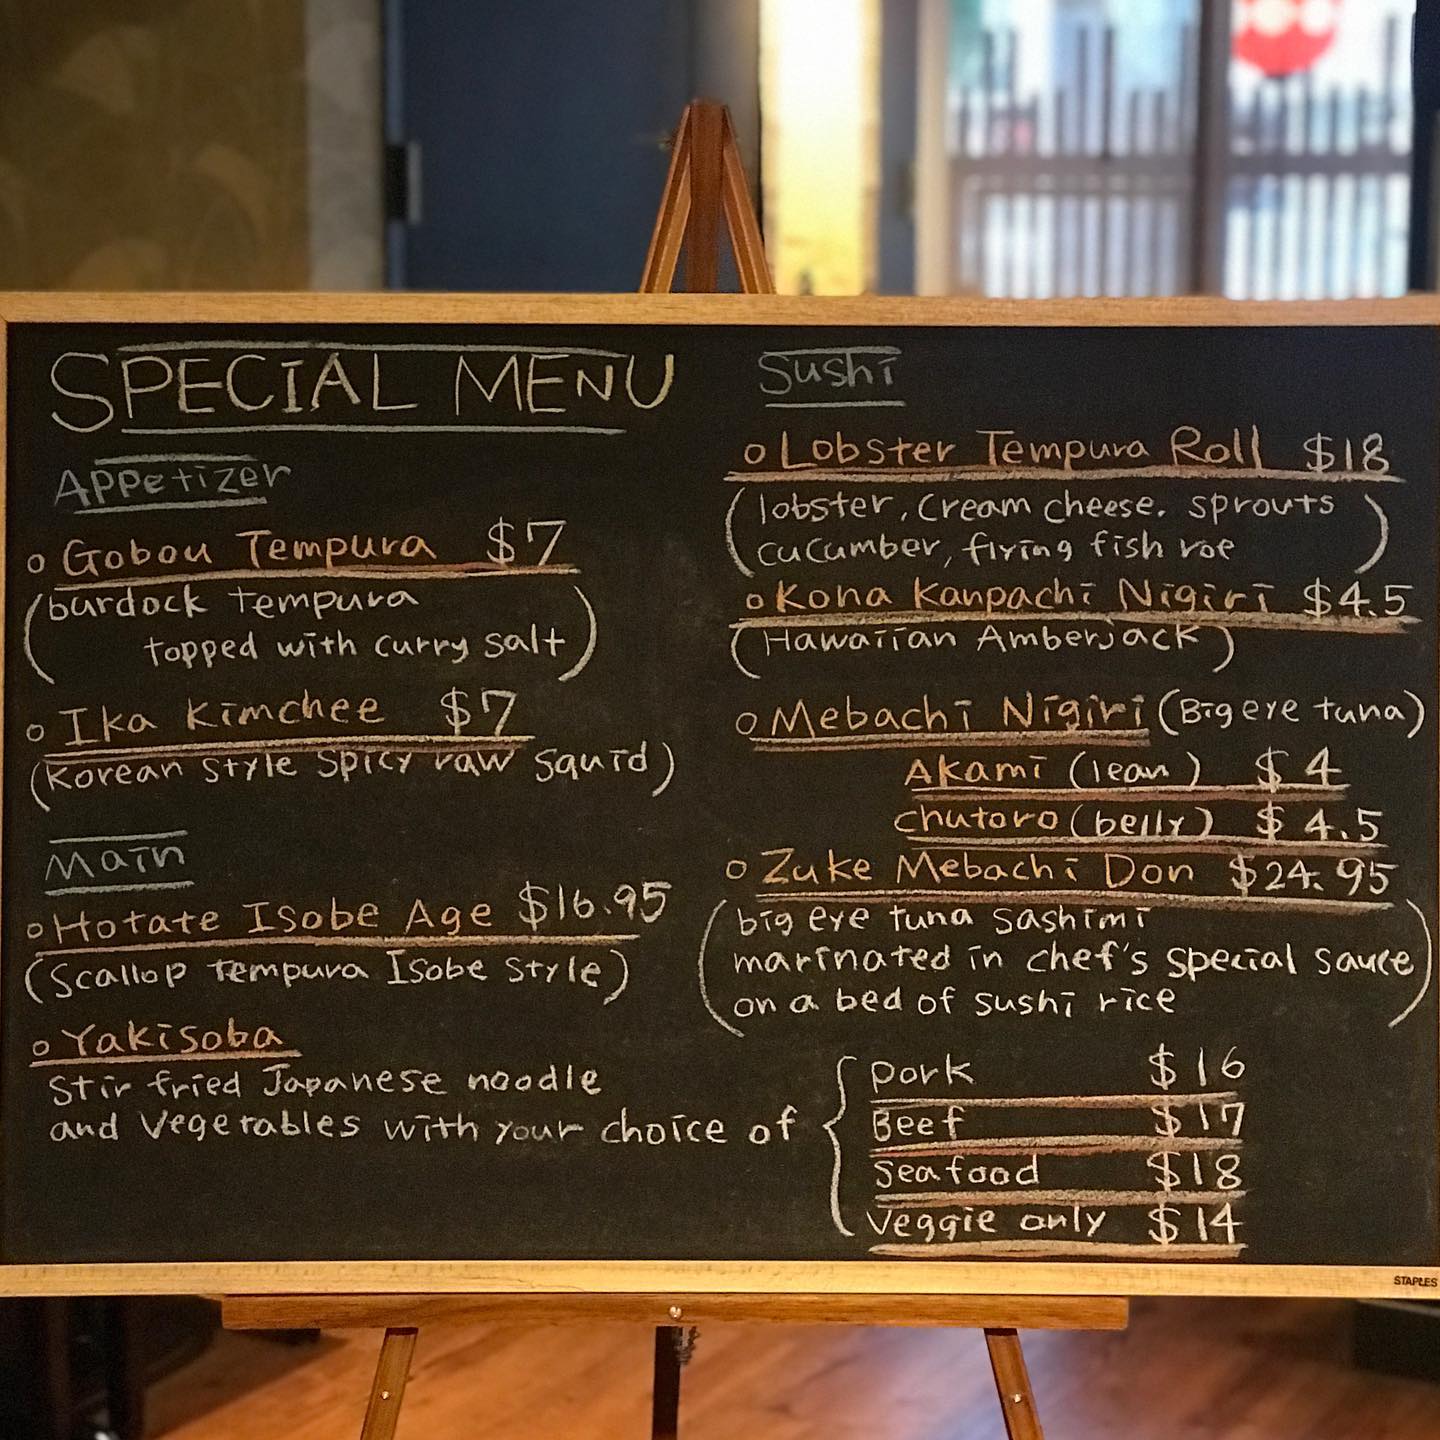 SPECIAL MENU
Appetizer
Gobou Tempura $7
(burdock tempura
topped with curry salt)
Ika Kimchee $7
(Korean style spicy raw squid)
Main
Hotate Isobe Age $16.95
(Scallop tempura Isobe style)
Yakisoba
Stir fried Japanese noodle
and vegetables with your choice of
pork $16
Beef $17
Seafood $18
Veggie only $14
Sushi
Lobster Tempura Roll $18
(lobster, cream cheese. sprouts
cucumber, flying fish roe)
Kona Kanpachi Nigiri $4.5
(Hawaiian Amberjack)
Mebachi Nigiri (Big eye tuna)
Akami (lean) $4
chutoro (belly) $4.5
Zuke Mebachi Don $24.95
(big eye tuna sashimi
marinated in chef's special sauce
on a bed of sushi rice)
STAPLES